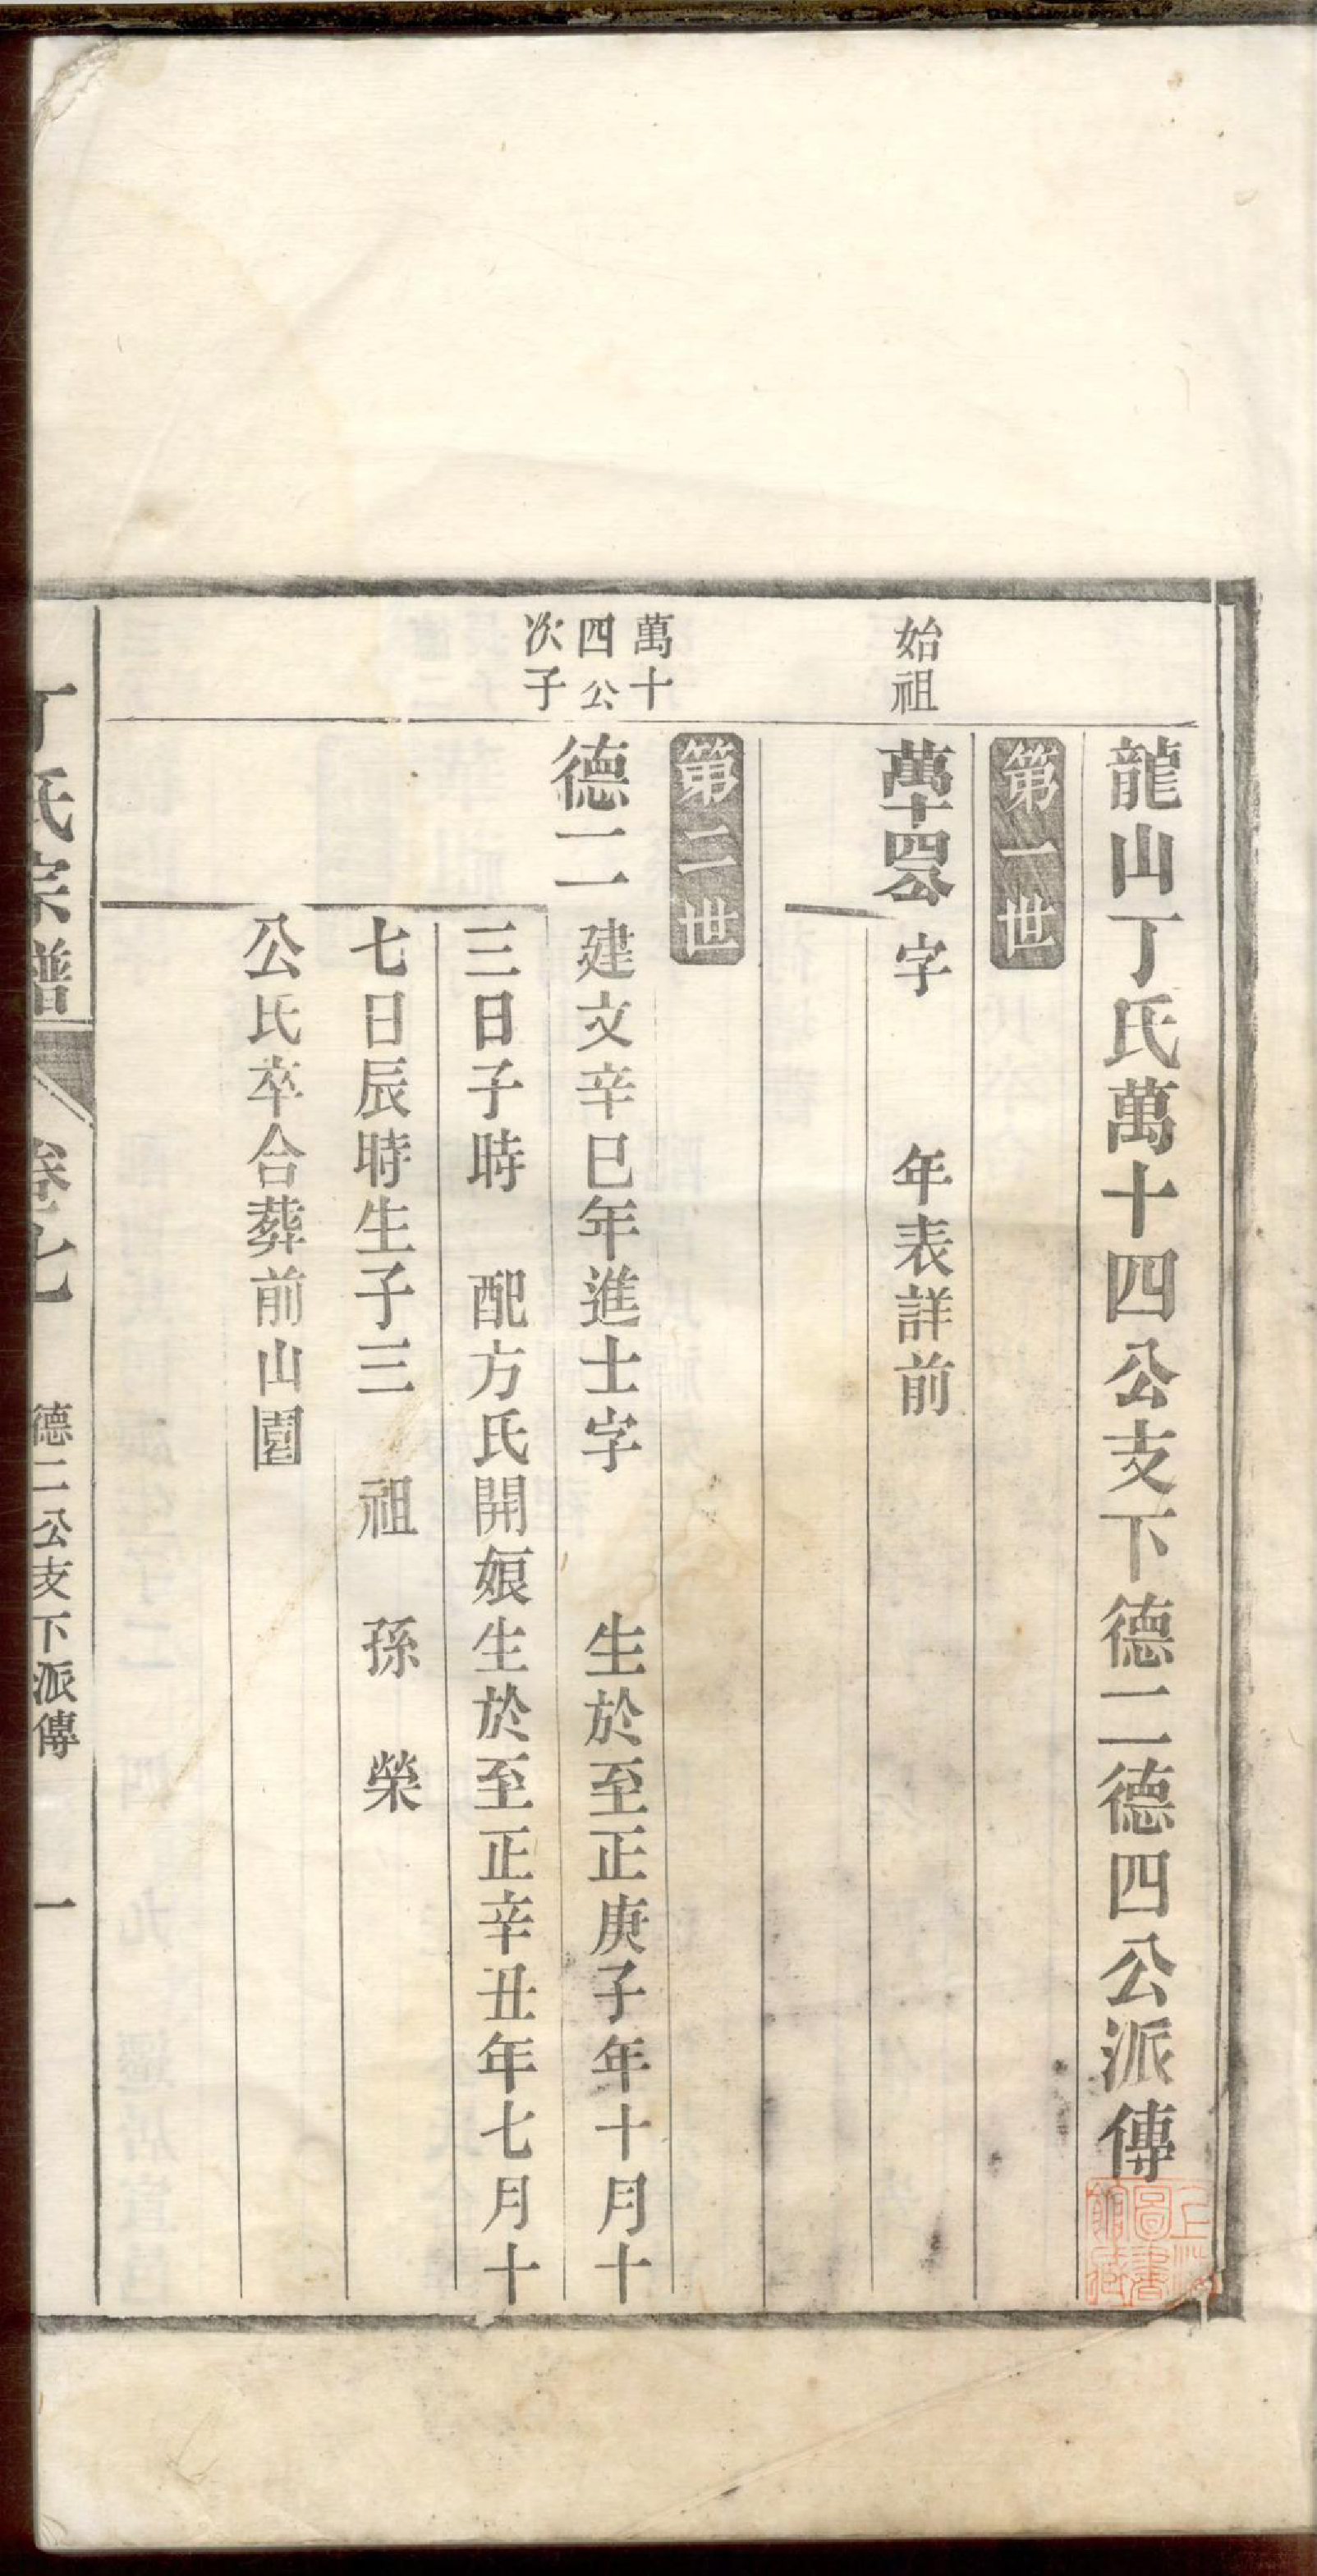 龍山丁氏萬十四公支下德二德四公派傳
第一世
始祖
萬十四公 字 年表詳前
第二世
萬十
四公
次子
德二 建文辛巳年進士字 生於至正庚子年十月十
三日子時 配方氏開娘生於至正辛丑年七月十
七日辰時生子三 祖 孫 榮
公氏卒合葬前山園
丁氏宗譜 卷之七 德二公支下派傳 一
上海圖書館藏